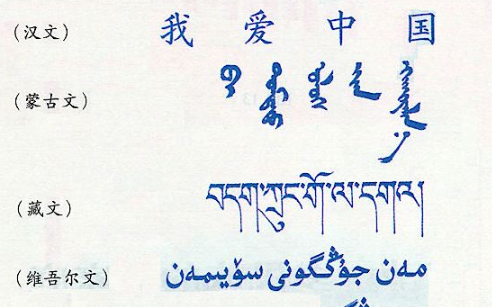 (汉文) 我 爱 中 国
(蒙古文)
(藏文) བདག་ཀྲུང་གོ་ལ་དགའ།
(维吾尔文) مەن جۇڭگونى سۆيىمەن